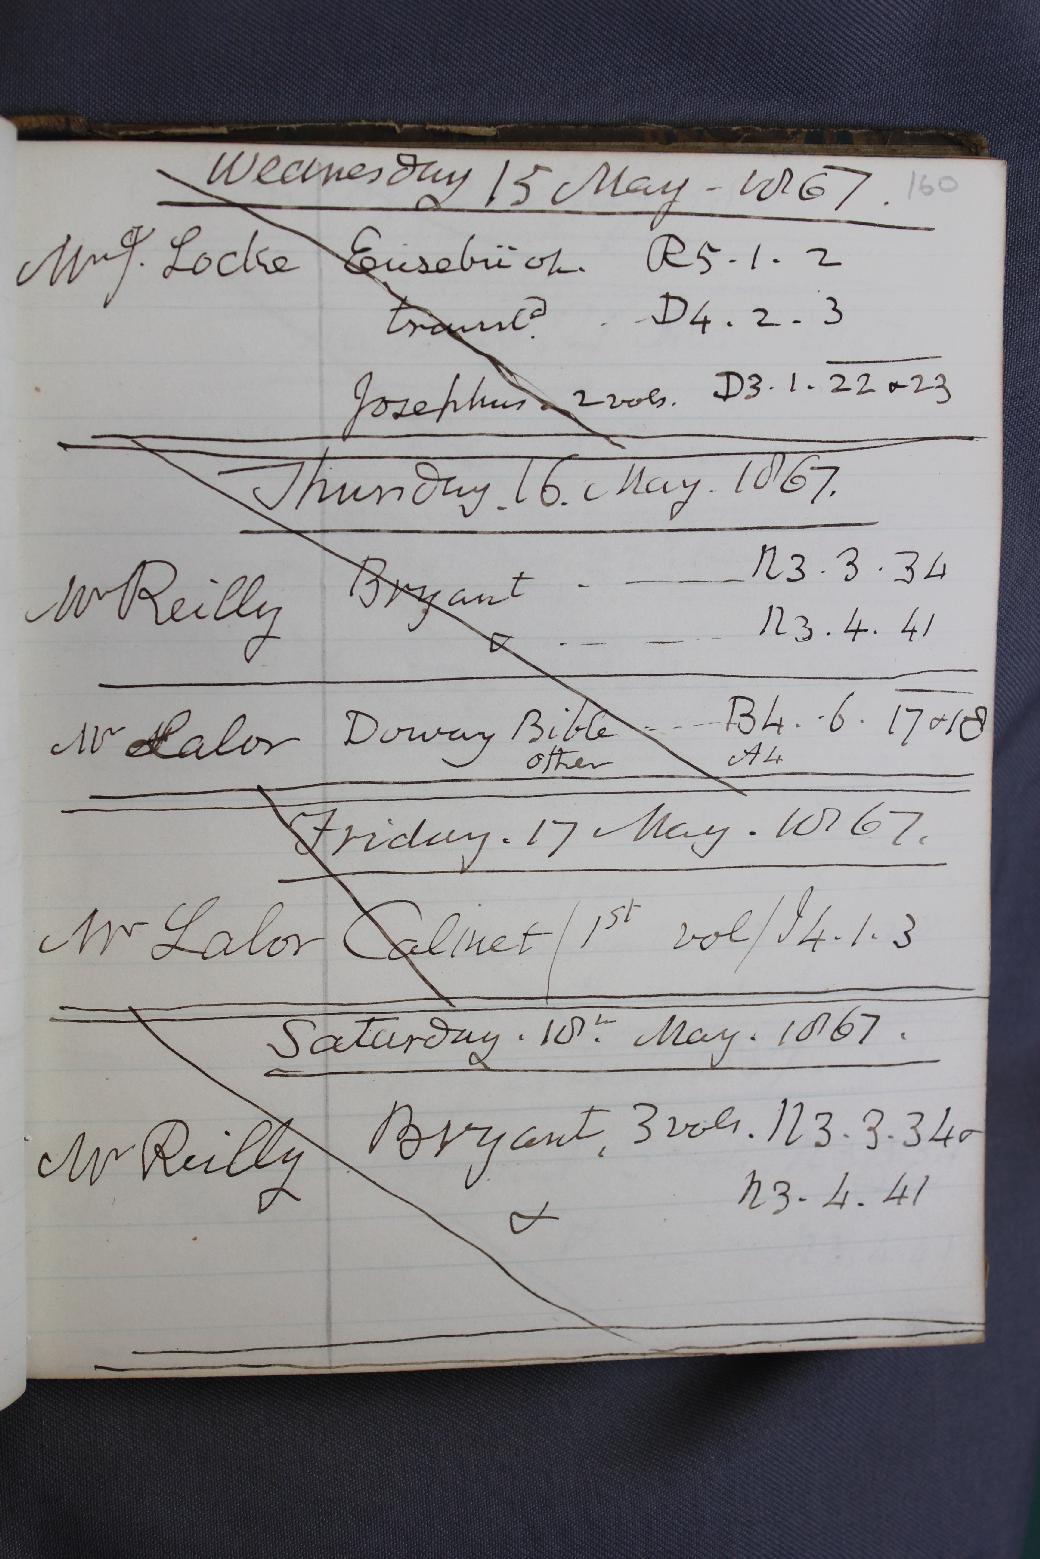 Wednesday 15 May - 1867. 160
Mr J. Locke Eusebii R5. 1. 2
transld. D4. 2. 3
Josephus. 2 vols. D3. 1. 22 & 23
Thursday. 16. May. 1867.
Mr Reilly Bryant - — N3. 3. 34
& - — N3. 4. 41
Mr Lalor Doway Bible - - B4. 6. 17 & 18
other A4
Friday. 17 May. 1867.
Mr Lalor Calmet / 1st vol / 4. 1. 3
Saturday. 18th May. 1867.
Mr Reilly Bryant, 3 vols. N3. 3. 34 &
& N3. 4. 41